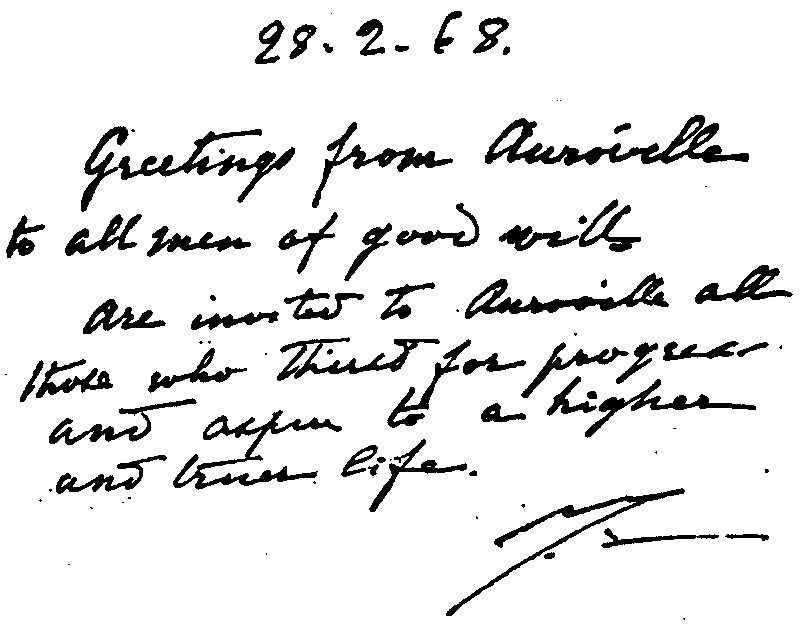 28.2.68.
Greetings from Auroville
to all men of good will
are invited to Auroville all
those who thirst for progress
and aspire to a higher
and truer life.